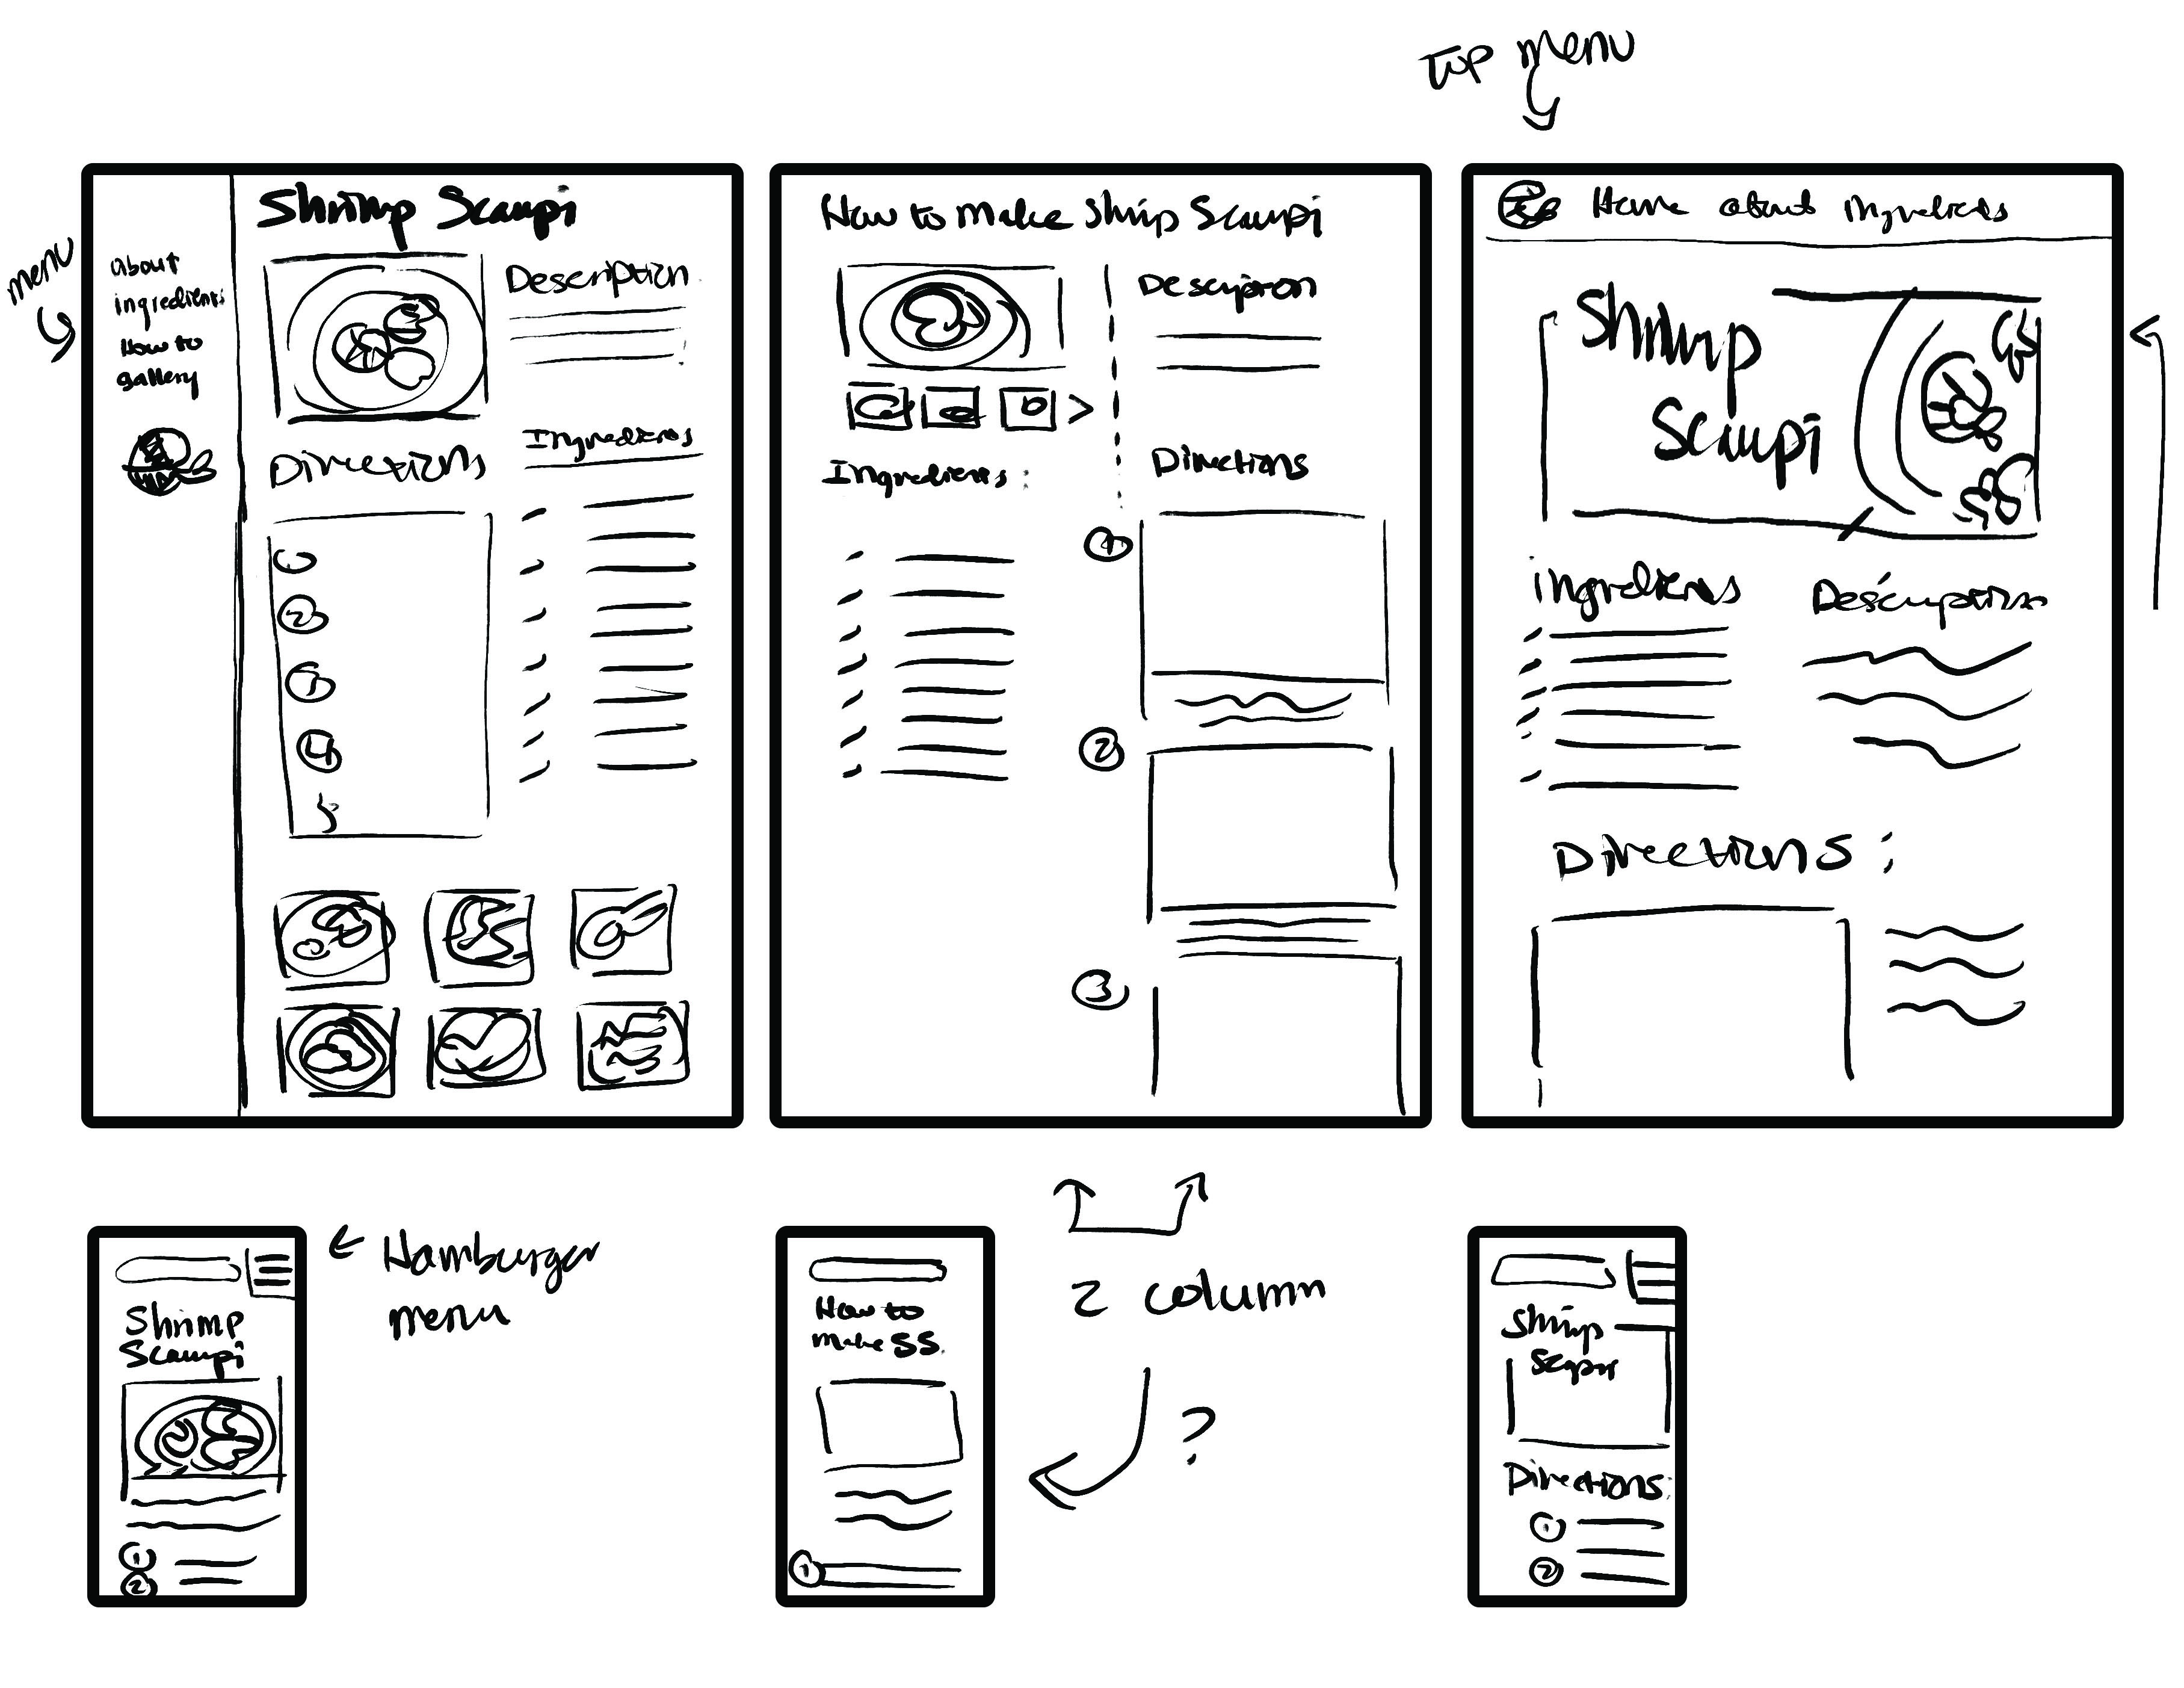 Top menu
menu
Shrimp Scampi
about
ingredients
How to
gallery
Description
Directions
Ingredients
2
3
4
5
How to Make Shrimp Scampi
Description
Ingredients:
Directions
1
2
3
Home about Ingredients
Shrimp
Scampi
ingredients
Description
Directions:
Hamburger
menu
Shrimp
Scampi
1
2
2 column
?
How to
Make SS.
1
Shrimp
Directions:
1
2